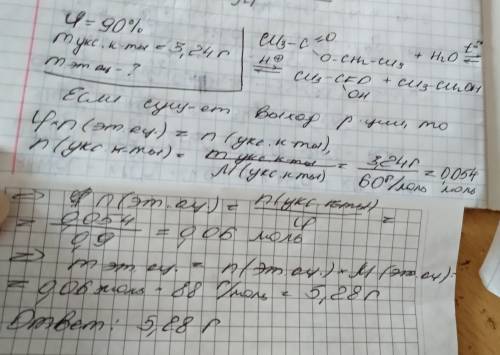 φ = 90%
m укс. к-ты = 3,24 г
m эт ац - ?
CH3-C=O
O-CH2-CH3 + H2O t°⇌
H⊕⇌ CH3-C=O + CH3-CH2OH
OH
Если сущ-ет выход р-ции, то
φ·n(эт.ац.) = n(укс.к-ты),
n(укс к-ты) = m укс к-ты / M(укс.к-ты) = 3,24г / 60 г/моль = 0,054 моль
⇒ n(эт.ац.) = n(укс.к-ты) / φ =
= 0,054 / 0,9 = 0,06 моль
⇒ m эт.ац. = n(эт.ац.)·M(эт.ац) =
= 0,06 моль · 88 г/моль = 5,28 г
Ответ: 5,28 г